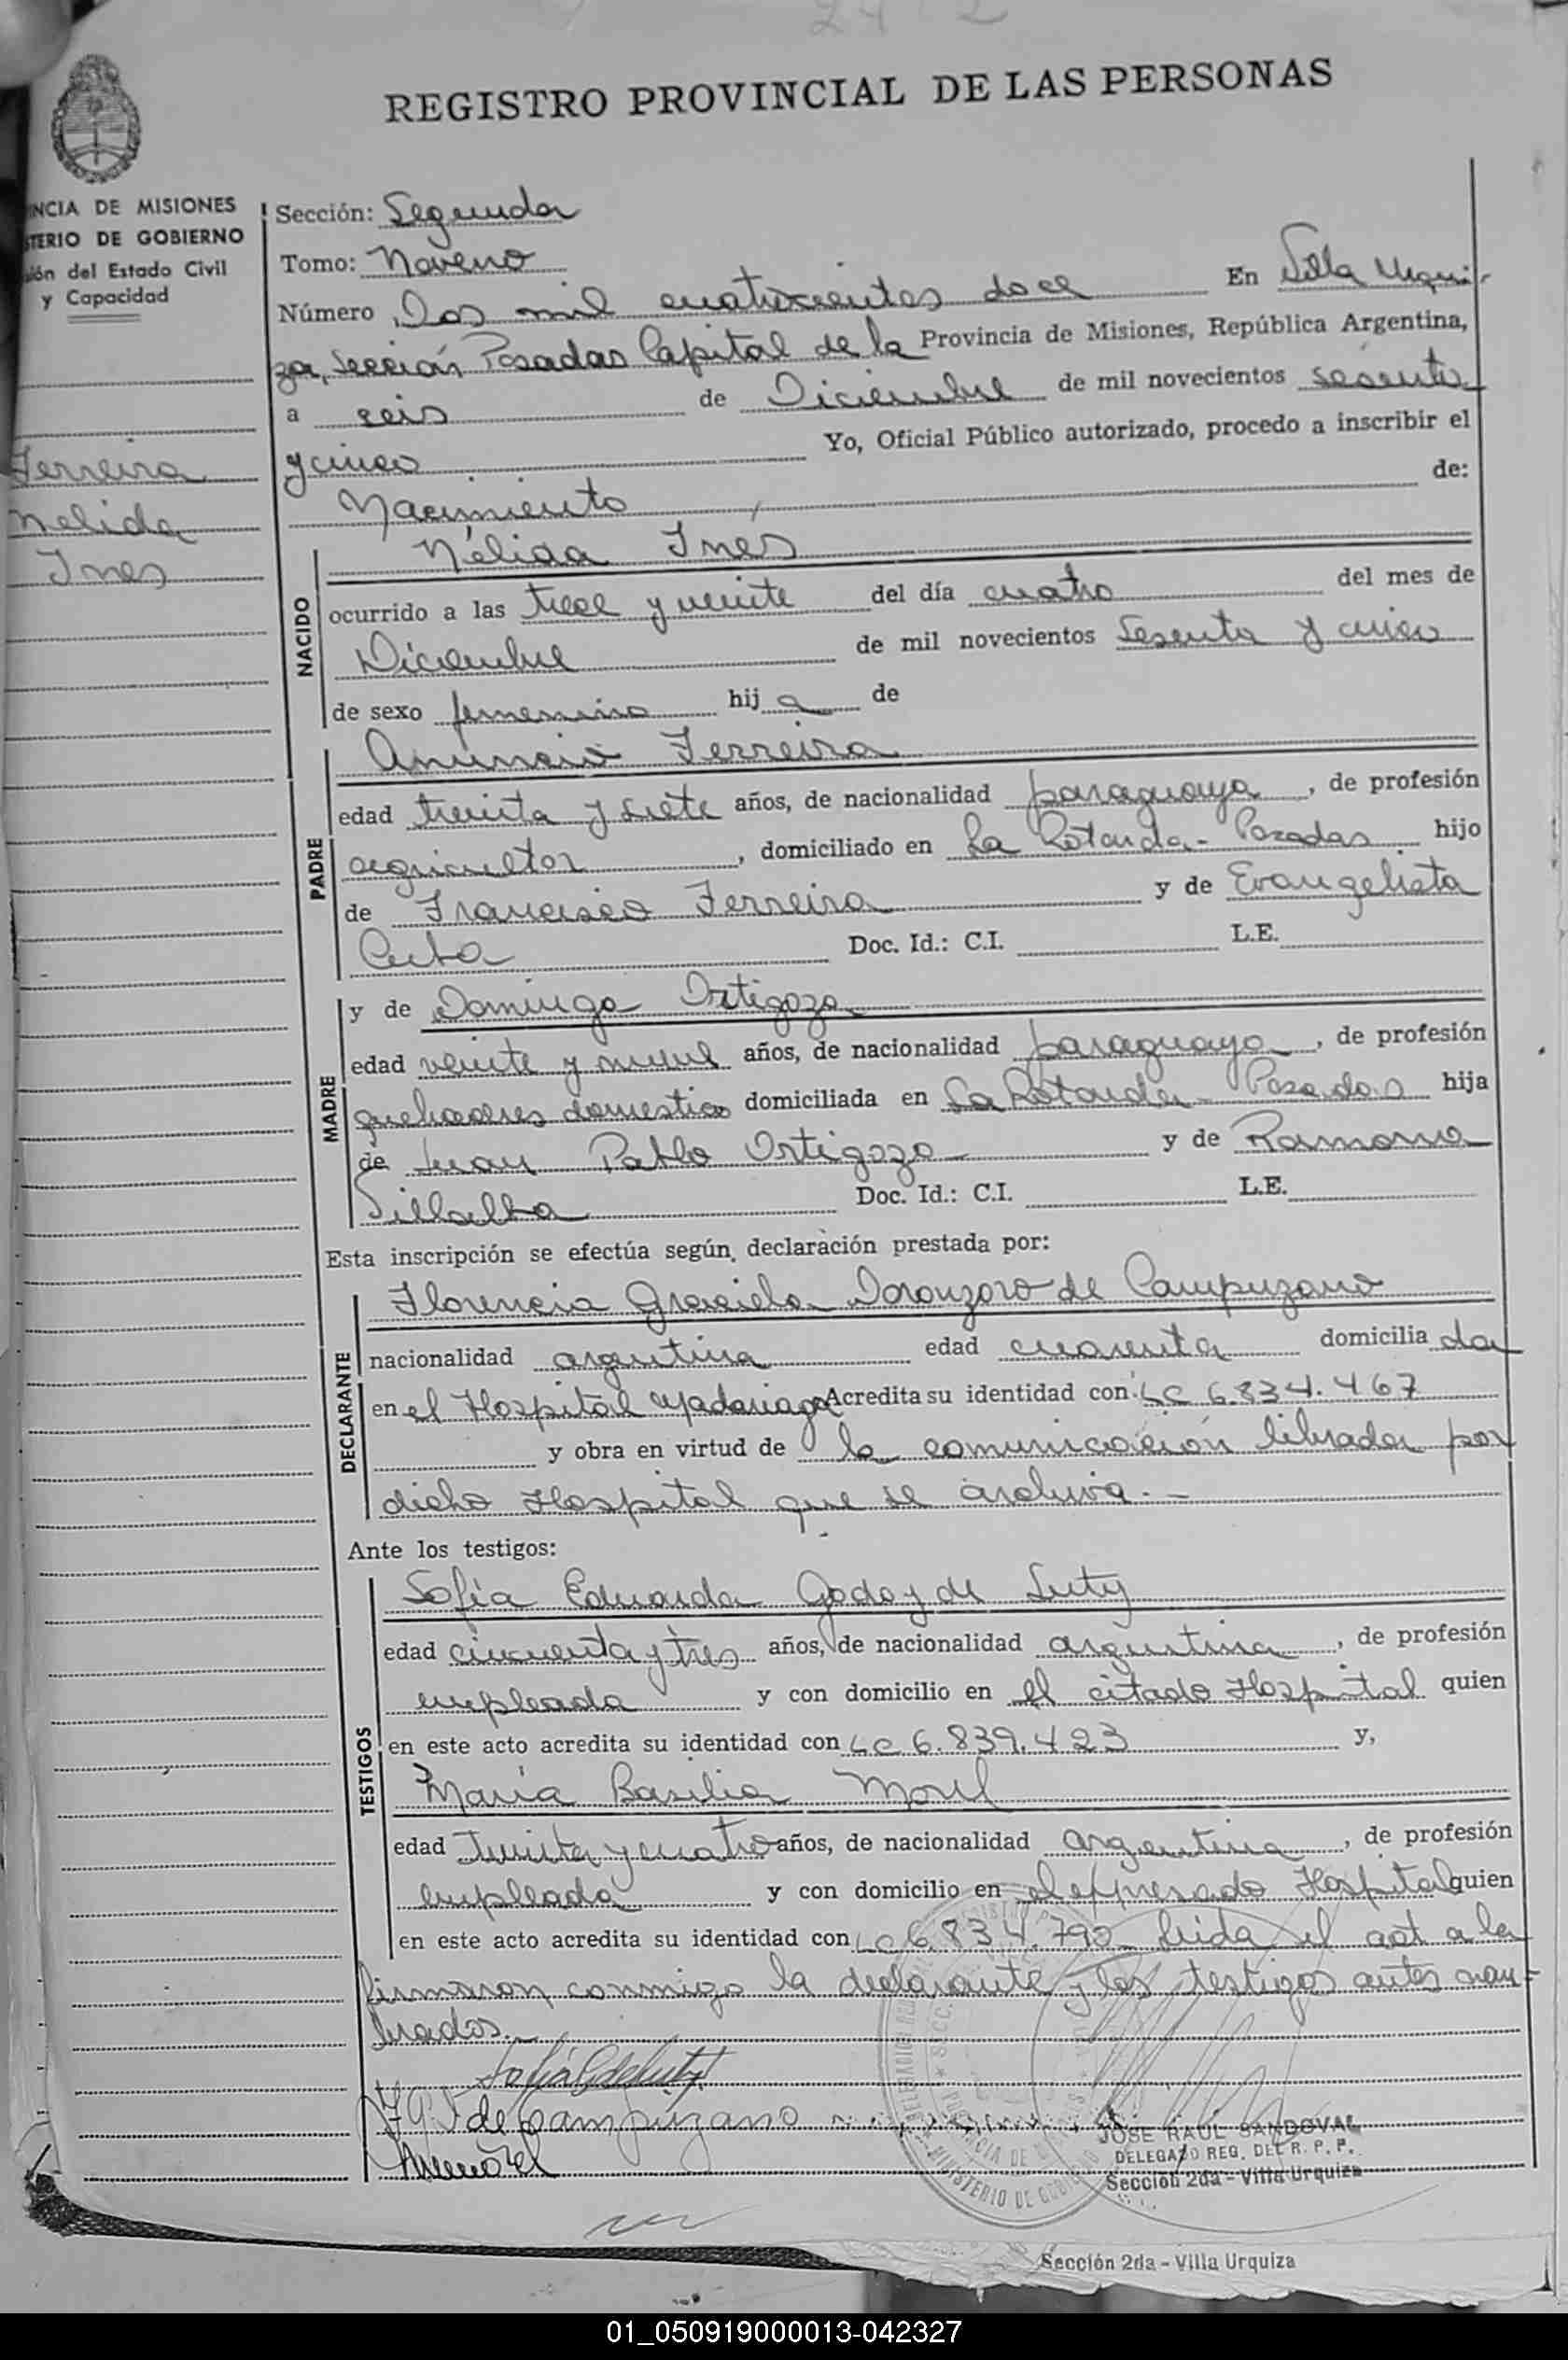 24 2
REGISTRO PROVINCIAL DE LAS PERSONAS
INCIA DE MISIONES
STERIO DE GOBIERNO
ión del Estado Civil
y Capacidad
Ferreira
Nelida
Ines
Sección: Segunda
Tomo: Noveno
Número Dos mil cuatrocientos doce En Villa Urqui-
za, Sección Posadas Capital de la Provincia de Misiones, República Argentina,
a seis de Diciembre de mil novecientos sesenta
y cinco Yo, Oficial Público autorizado, procedo a inscribir el
Nacimiento de:
NACIDO
Nélida Ines
ocurrido a las trece y veinte del día cuatro del mes de
Diciembre de mil novecientos Sesenta y cinco
de sexo femenino hij a de
PADRE
Anuncio Ferreira
edad treinta y siete años, de nacionalidad paraguaya, de profesión
agricultor, domiciliado en La Rotonda - Posadas hijo
de Francisco Ferreira y de Evangelista
Doc. Id.: C.I. L.E.
MADRE
y de Dominga Ortigoza
edad veinte y nueve años, de nacionalidad paraguaya, de profesión
quehaceres domestico domiciliada en La Rotonda - Posadas hija
de Juan Pablo Ortigoza y de Ramona
Villalba Doc. Id.: C.I. L.E.
Esta inscripción se efectúa según declaración prestada por:
DECLARANTE
Florencia Graciela de Campuzano
nacionalidad argentina edad cuarenta domicilia da
en el Hospital Madariaga Acredita su identidad con LC 6.834.467
y obra en virtud de la comunicación librada por
dicho Hospital que se archiva.-
Ante los testigos:
TESTIGOS
Sofía Eduarda Godoy de Luty
edad cincuenta y tres años, de nacionalidad argentina, de profesión
empleada y con domicilio en el citado Hospital quien
en este acto acredita su identidad con LC 6.839.423 y,
María Basilia Morel
edad Treinta y cuatro años, de nacionalidad argentina, de profesión
empleada y con domicilio en el expresado Hospital quien
en este acto acredita su identidad con LC 6.834.790 leida el act a la
firmaron conmigo la declarante y los testigos antes nom-
brados.-
de Campuzano
JOSE RAUL SANDOVAL
DELEGADO REG. DEL R. P. P.
Sección 2da - Villa Urquiza
Sección 2da - Villa Urquiza
01_050919000013-042327